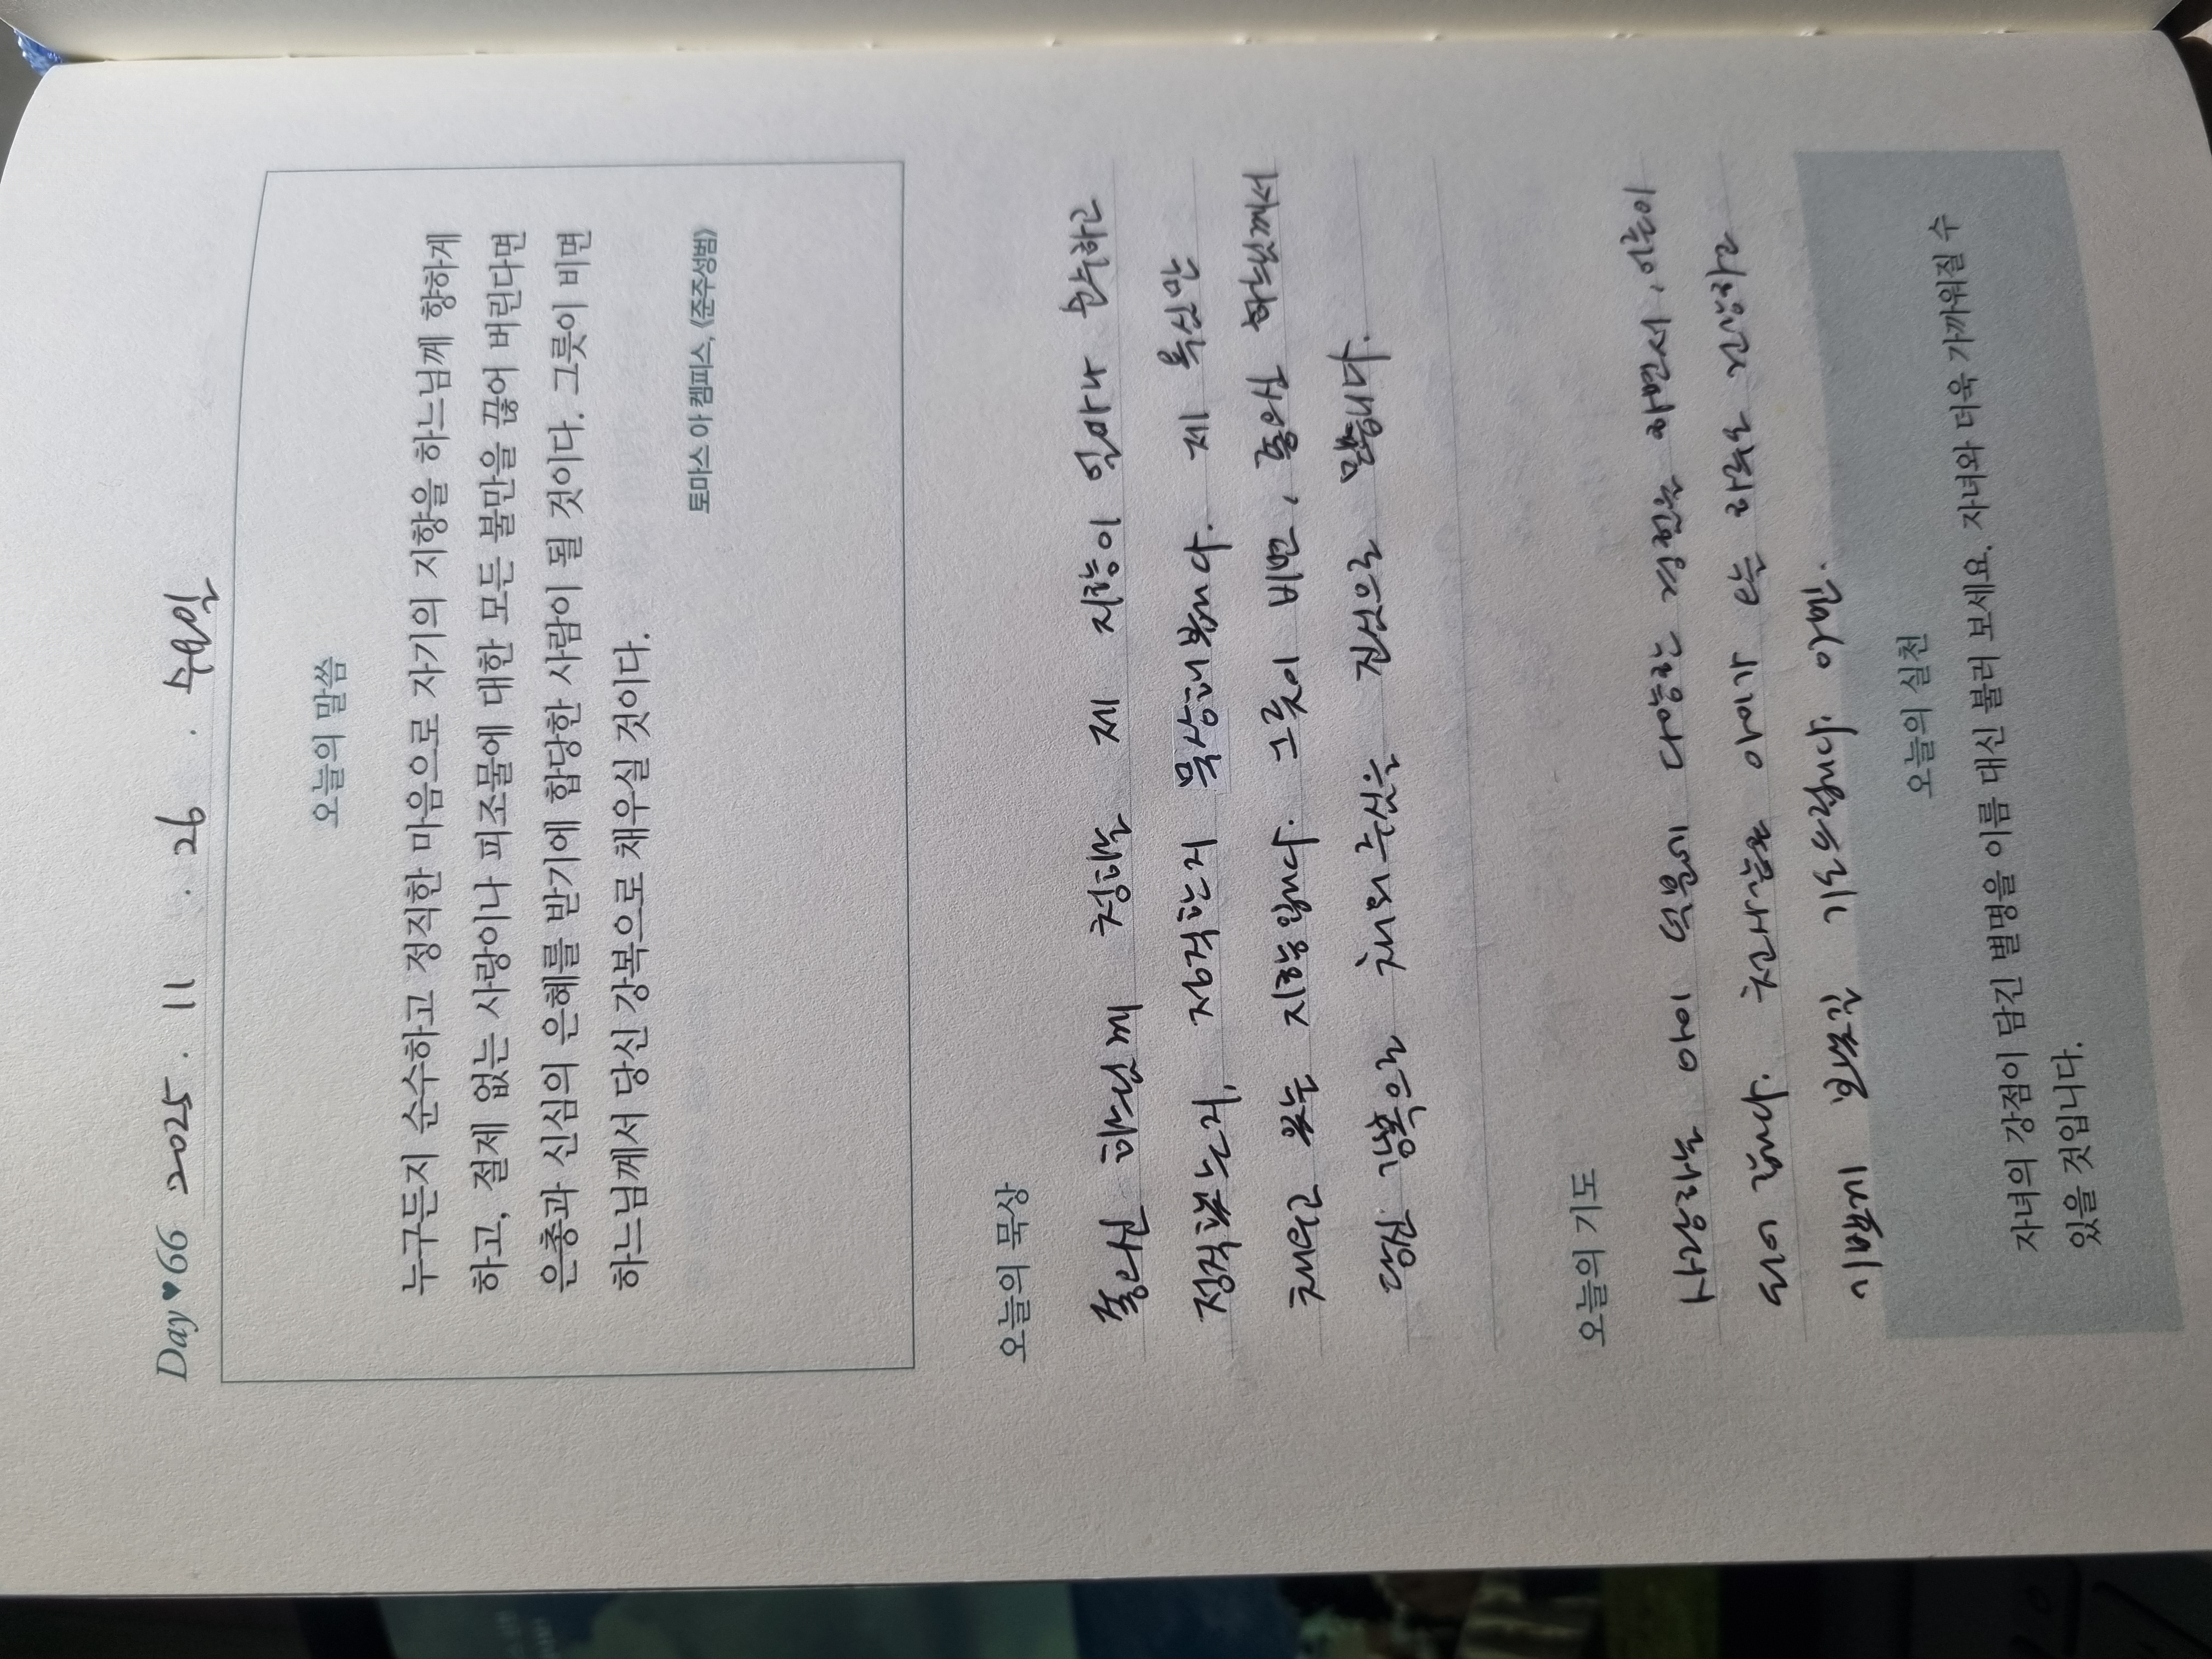 Day ♥ 66 2025. 11. 26. 수요일
오늘의 말씀
누구든지 순수하고 정직한 마음으로 자기의 지향을 하느님께 향하게
하고, 절제 없는 사랑이나 피조물에 대한 모든 불만을 끊어 버린다면
은총과 신심의 은혜를 받기에 합당한 사람이 될 것이다. 그릇이 비면
하느님께서 당신 강복으로 채우실 것이다.
토마스 아 켐피스, 《준주성범》
오늘의 묵상
좋으신 하느님께 청하는 제 지향이 얼마나 순수하고
정직했는지, 정직한지 묵상해봅니다. 제 욕심만
채우고 있는 지향입니다. 그릇이 비면, 좋으신 하느님께서
당신 강복으로 채워주심을 진심으로 믿습니다.
오늘의 기도
사랑하는 아이 덕분에 다양한 경험을 하면서, 어른이
되어 갑니다. 천사같은 아이가 오늘 하루도 건강하고
기쁘게 보내길 기도드립니다 아멘.
오늘의 실천
자녀의 강점이 담긴 별명을 이름 대신 불러 보세요. 자녀와 더욱 가까워질 수
있을 것입니다.